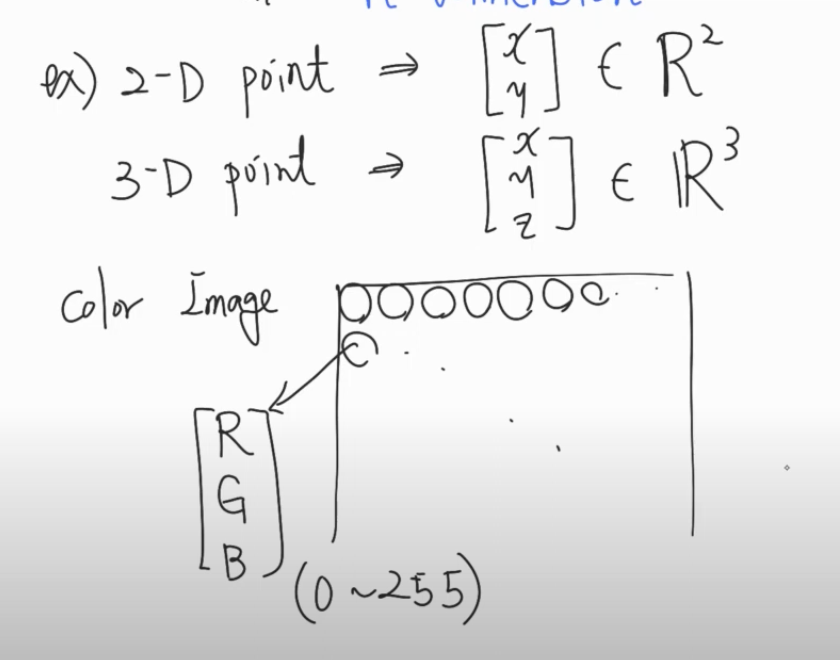 ex) 2-D point ⇒ [x y] ∈ R²
3-D point ⇒ [x y z] ∈ ℝ³
Color Image
[R
G
B]
(0 ~255)